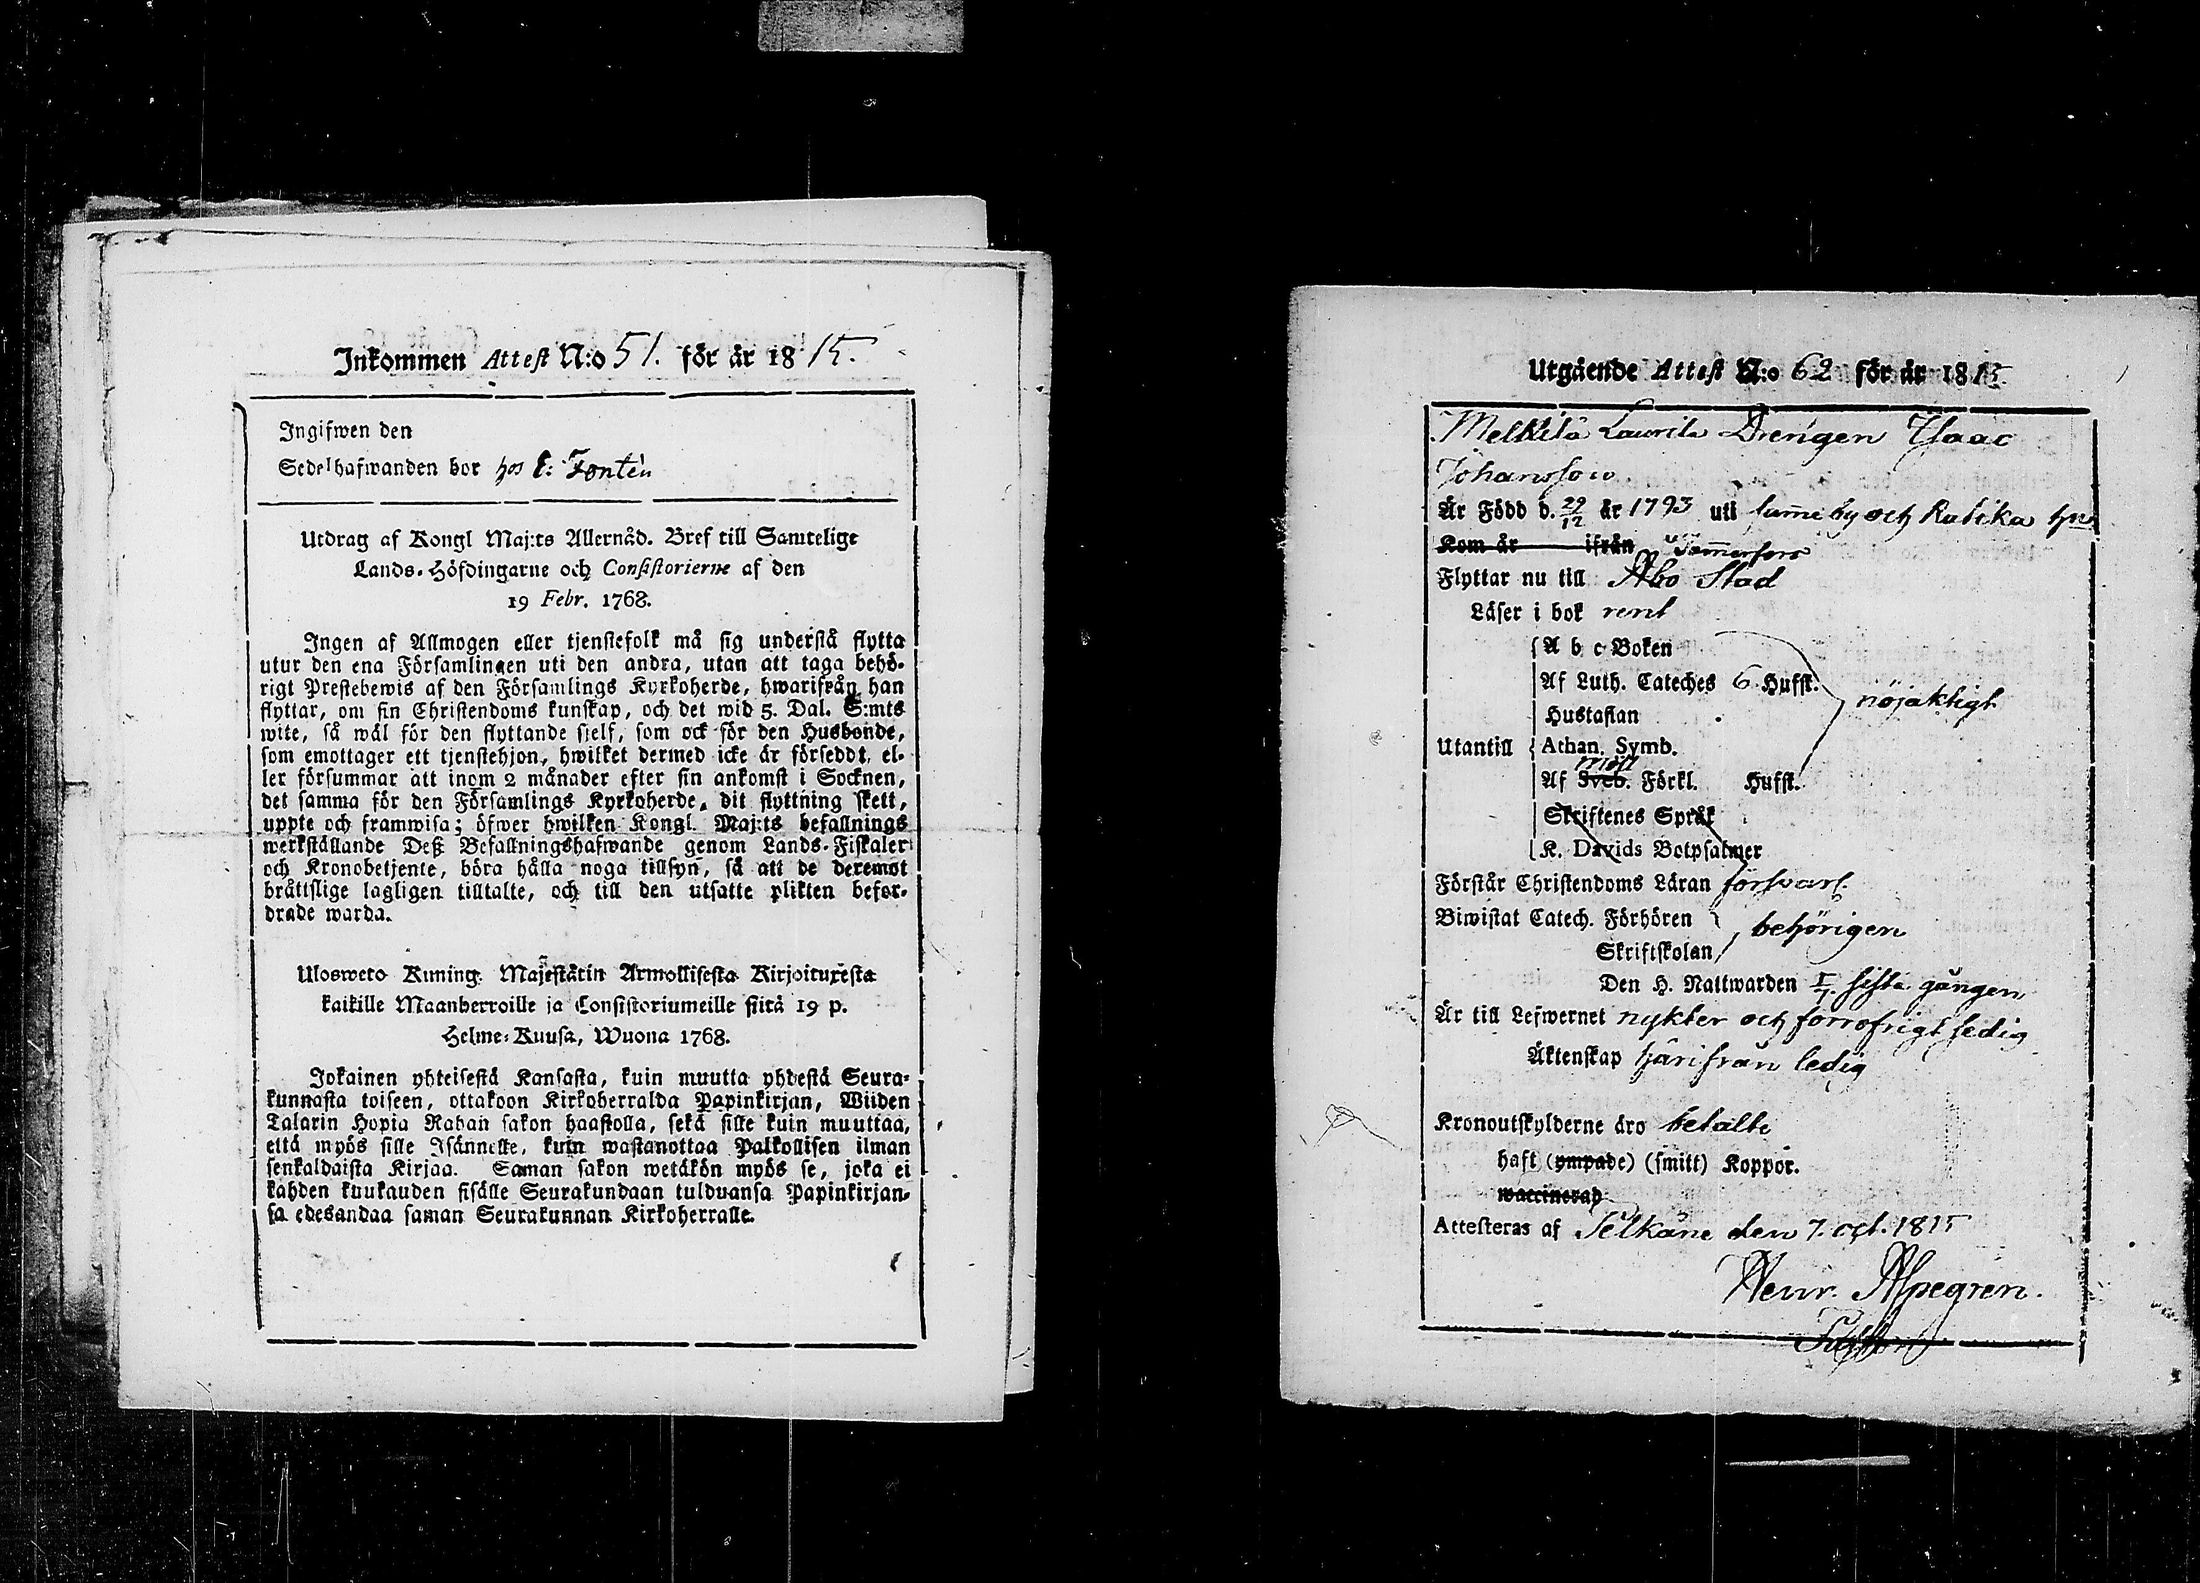 Inkommen Attest N:o 51. för år 1815.
Ingifwen den
Sedelhafwanden bor hos C: Fontén
Utdrag af Kongl Maj:ts Allernåd. Bref till Samtelige
Lands-Höfdingarne och Consistorierne af den
19 Febr. 1768.
Ingen af Allmogen eller tjenstefolk må sig understå flytta
utur den ena Församlingen uti den andra, utan att taga behö-
rigt Prestebewis af den Församlings Kyrkoherde, hwarifrån han
flyttar, om sin Christendoms kunskap, och det wid 5. Dal. S:mts
wite, så wäl för den flyttande sielf, som ock för den Husbonde,
som emottager ett tjenstehjon, hwilket dermed icke är förseddt, el-
ler försummar att inom 2 månader efter sin ankomst i Socknen,
det samma för den Församlings Kyrkoherde, dit flyttning skett,
uppte och framwisa; öfwer hwilken Kongl. Maj:ts befallnings
werkställande Deß Befallningshafwande genom Lands-Fiskaler
och Kronobetjente, böra hålla noga tillsyn, så att de deremot
bråttslige lagligen tilltalte, och till den utsatte plikten befor-
drade warda.
Ulosweto Kuning. Majestätin Armollisesta Kirjoituxesta
kaikille Maanherroille ja Consistoriumeille siitä 19 p.
Helme-Kuusa, Wuona 1768.
Jokainen yhteisestä Kansasta, kuin muutta yhdestä Seura-
kunnasta toiseen, ottakoon Kirkoherralda Papinkirjan, Wiiden
Talarin Hopia Rahan sakon haastolla, sekä sille kuin muuttaa,
että myös sille Isännelle, kuin wastanottaa Palkollisen ilman
senkaldaista Kirjaa. Saman sakon wetäkön myös se, joka ei
kahden kuukauden sisälle Seurakundaan tulduansa Papinkirjan-
sa edesandaa saman Seurakunnan Kirkoherralle.
Utgående Attest N:o 62 för år 1815
Melkila Laurila Drengen Isaac
Johansson
Är Född d. 29/12 år 1793 uti samme by och Kutika
Kom år ifrån Tammerfors
Flyttar nu till Åbo Stad
Läser i bok rent
A b c Boken
Af Luth. Cateches 6 Hufst.
nöjaktigt
Hustaflan
Utantill Athan. Symb.
Af Sveb. Förkl. Hufst.
Skriftenes Språk
K. Davids Botpsalmer
Förstår Christendoms Läran försvarl.
Biwistat Catech. Förhören
behörigen
Skriftskolan
Den H. Nattwarden sista gången
Är till Lefwernet nykter och förröfrigt sedig
Äktenskap härifrån ledig
Kronoutskylderne äro betalte
haft (ympade) (smitt) Koppor.
waccinerad
Attesteras af Selkäne den 7. oct. 1815
Henr. Alpegren.